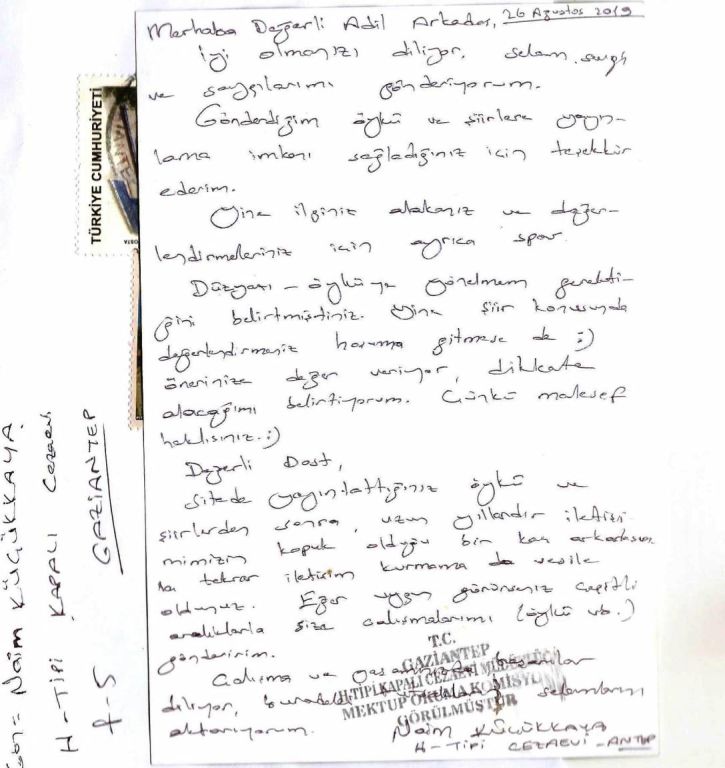 26 Ağustos 2019
Merhaba Değerli Adil Arkadaş,
İyi olmanızı diliyor, selam, sevgi
ve saygılarımı gönderiyorum.
Gönderdiğim öykü ve şiirlere yayın-
lama imkanı sağladığınız için teşekkür
ederim.
Yine ilginiz alakanız ve değer-
lendirmeleriniz için ayrıca
Düzyazı - öyküye yönelmem gerekti-
ğini belirtmiştiniz. Yine şiir konusunda
değerlendirmeniz hoşuma gitmese de :)
önerinize değer veriyor, dikkate
alacağımı belirtiyorum. Çünkü malesef
haklısınız. :)
Değerli Dost,
Sitede yayınlattığınız öykü ve
şiirlerden sonra, uzun yıllardır iletişi-
mimizin kopuk olduğu bir kaç arkadaşım
la tekrar iletişim kurmama da vesile
oldunuz. Eğer uygun görürseniz çeşitli
aralıklarla size çalışmalarımı (öykü vb.)
gönderirim.
Çalışma ve yaşamınızda başarılar
diliyor, selamlarını
aktarıyorum.
Naim KÜÇÜKKAYA
H-TİPİ CEZAEVİ - ANTEP
T.C.
GAZİANTEP
H TİPİ KAPALI CEZAEVİ MÜDÜRLÜĞÜ
MEKTUP OKUMA KOMİSYONU
GÖRÜLMÜŞTÜR
TÜRKİYE CUMHURİYETİ
Gön= Naim KÜÇÜKKAYA
H-TİPİ KAPALI Cezaevi
A-5 GAZİANTEP